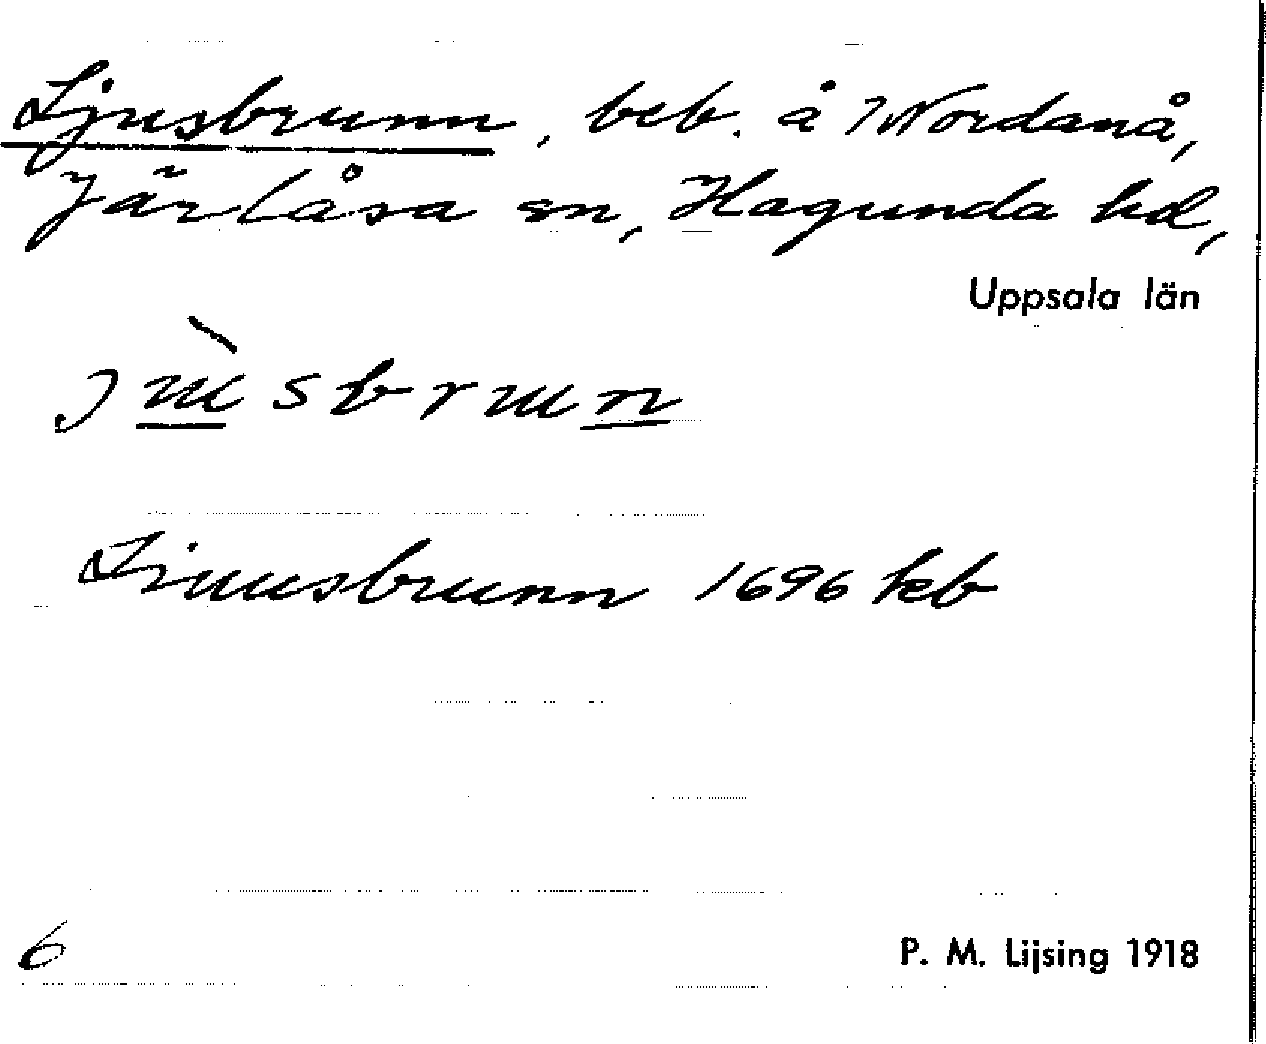 Ljusbrunn, beb. å Nordanå,
Järlåsa sn, Hagunda hd,
Uppsala län
jùsbrun
Liuusbrunn 1696 kb
6
P. M. Lijsing 1918